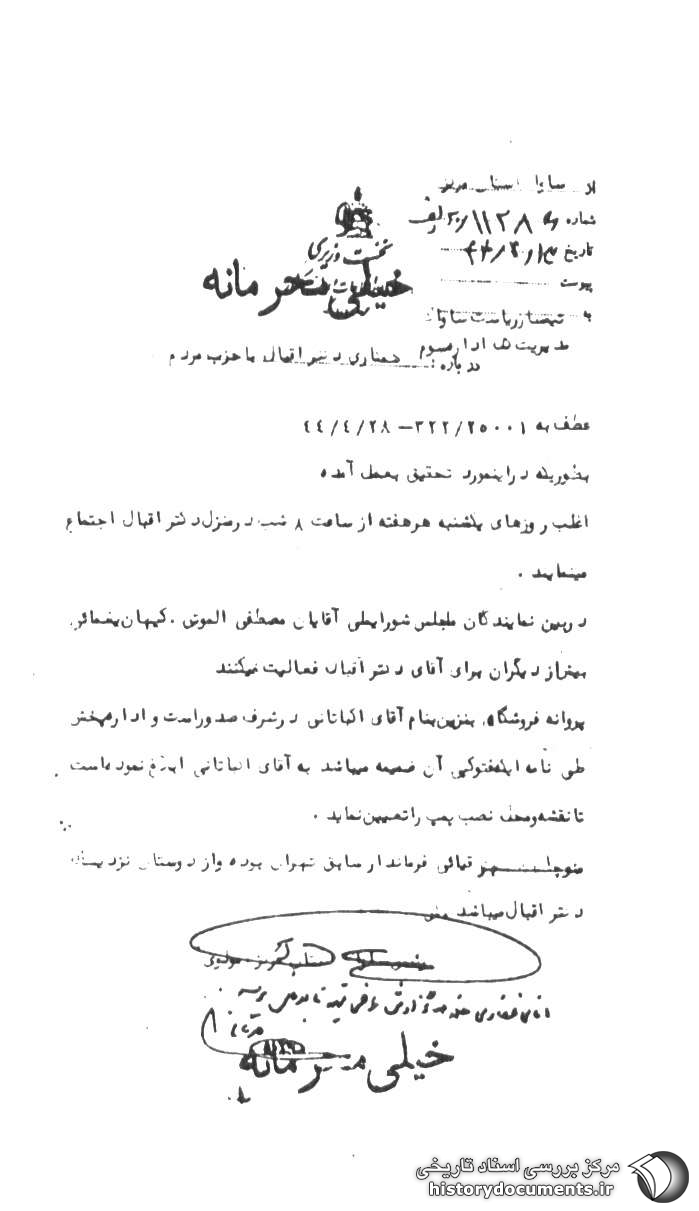 از ساواک استان مرکز
شماره ۱۱۲۸
تاریخ
پیوست
نخست وزیری
خیلی محرمانه
به تیمسار ریاست ساواک
مدیریت کل اداره سوم
درباره : همکاری دکتر اقبال با حزب مردم
عطف به ۳۲۲/۲۵۰۰۱ – ۴۴/۴/۲۸
بطوریکه در اینمورد تحقیق بعمل آمده
اغلب روزهای یکشنبه هر هفته از ساعت ۸ شب در منزل دکتر اقبال اجتماع
مینمایند .
در بین نمایندگان مجلس شورایملی آقایان مصطفی الموتی . کیهان یغمائی
بیش از دیگران برای آقای دکتر اقبال فعالیت میکنند
پروانه فروشگاه بنزین بنام آقای اکباتانی در شرف صدور است و اداره پخش
طی نامه ایکه فتوکپی آن ضمیمه میباشد به آقای اکباتانی ابلاغ نموده است
تا نقشه و محل نصب پمپ را تعیین نماید .
منوچهر قیائی فرماندار سابق تهران بوده و از دوستان نزدیک
دکتر اقبال میباشد
رئیس ساواک استان مرکز . مولوی
خیلی محرمانه
مرکز بررسی اسناد تاریخی
historydocuments.ir